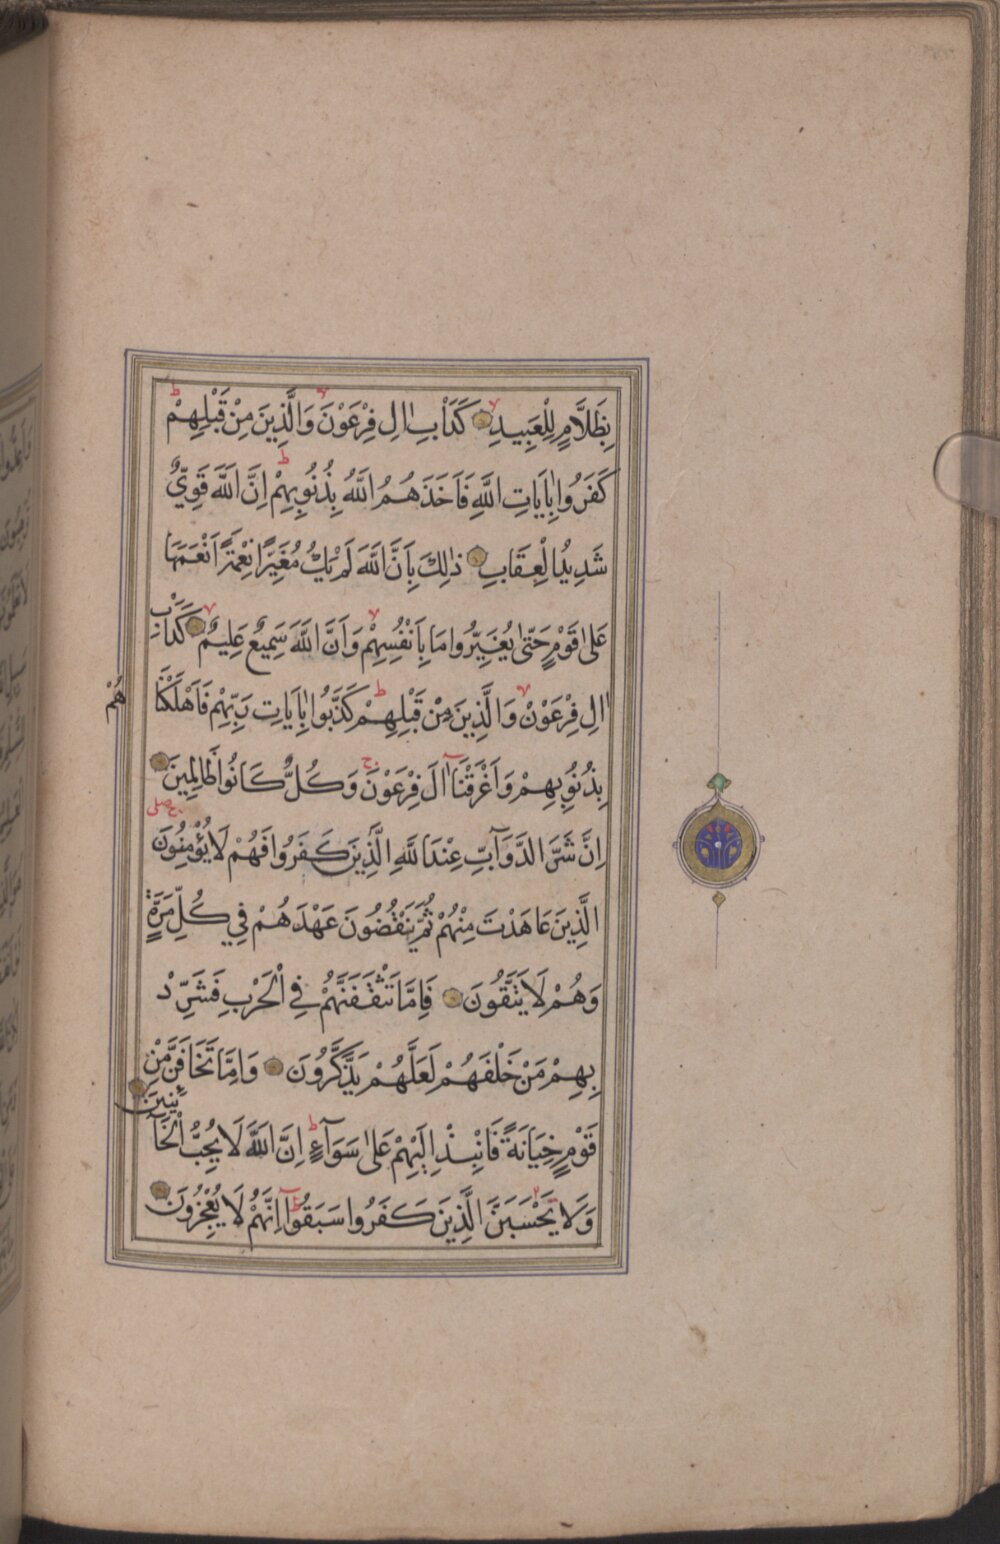 بِظَلَّامٍ لِلْعَبِيدِ كَدَاْبِ اٰلِ فِرْعَوْنَ وَالَّذِينَ مِنْ قَبْلِهِمْ
كَفَرُوا بِاٰيَاتِ اللَّهِ فَاَخَذَهُمُ اللَّهُ بِذُنُوبِهِمْ اِنَّ اللَّهَ قَوِيٌّ
شَدِيدُ الْعِقَابِ ذٰلِكَ بِاَنَّ اللَّهَ لَمْ يَكُ مُغَيِّرًا نِعْمَةً اَنْعَمَهَا
عَلٰى قَوْمٍ حَتّٰى يُغَيِّرُوا مَا بِاَنْفُسِهِمْ وَاَنَّ اللَّهَ سَمِيعٌ عَلِيمٌ كَدَاْبِ
اٰلِ فِرْعَوْنَ وَالَّذِينَ مِنْ قَبْلِهِمْ كَذَّبُوا بِاٰيَاتِ رَبِّهِمْ فَاَهْلَكْنَا
هُمْ
بِذُنُوبِهِمْ وَاَغْرَقْنَٓا اٰلَ فِرْعَوْنَ وَكُلٌّ كَانُوا ظَالِمِينَ
اِنَّ شَرَّ الدَّوَٓابِّ عِنْدَ اللَّهِ الَّذِينَ كَفَرُوا فَهُمْ لَا يُؤْمِنُونَ
الَّذِينَ عَاهَدْتَ مِنْهُمْ ثُمَّ يَنْقُضُونَ عَهْدَهُمْ فِي كُلِّ مَرَّةٍ
وَهُمْ لَا يَتَّقُونَ فَاِمَّا تَثْقَفَنَّهُمْ فِي الْحَرْبِ فَشَرِّدْ
بِهِمْ مَنْ خَلْفَهُمْ لَعَلَّهُمْ يَذَّكَّرُونَ وَاِمَّا تَخَافَنَّ مِنْ
قَوْمٍ خِيَانَةً فَانْبِذْ اِلَيْهِمْ عَلٰى سَوَٓاءٍ اِنَّ اللَّهَ لَا يُحِبُّ الْخَٓا
ئِنِينَ
وَلَا تَحْسَبَنَّ الَّذِينَ كَفَرُوا سَبَقُوا اِنَّهُمْ لَا يُعْجِزُونَ